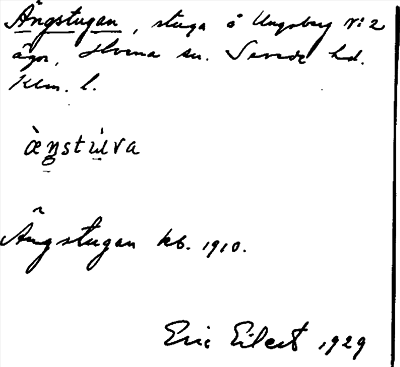 Ängstugan, stuga å Ungsberg No 2
ägor, Hvena sn. Sevede hd.
Klm. l.
ä̀ŋstùva
Ängstugan kb. 1910.
Eric Eilert 1929